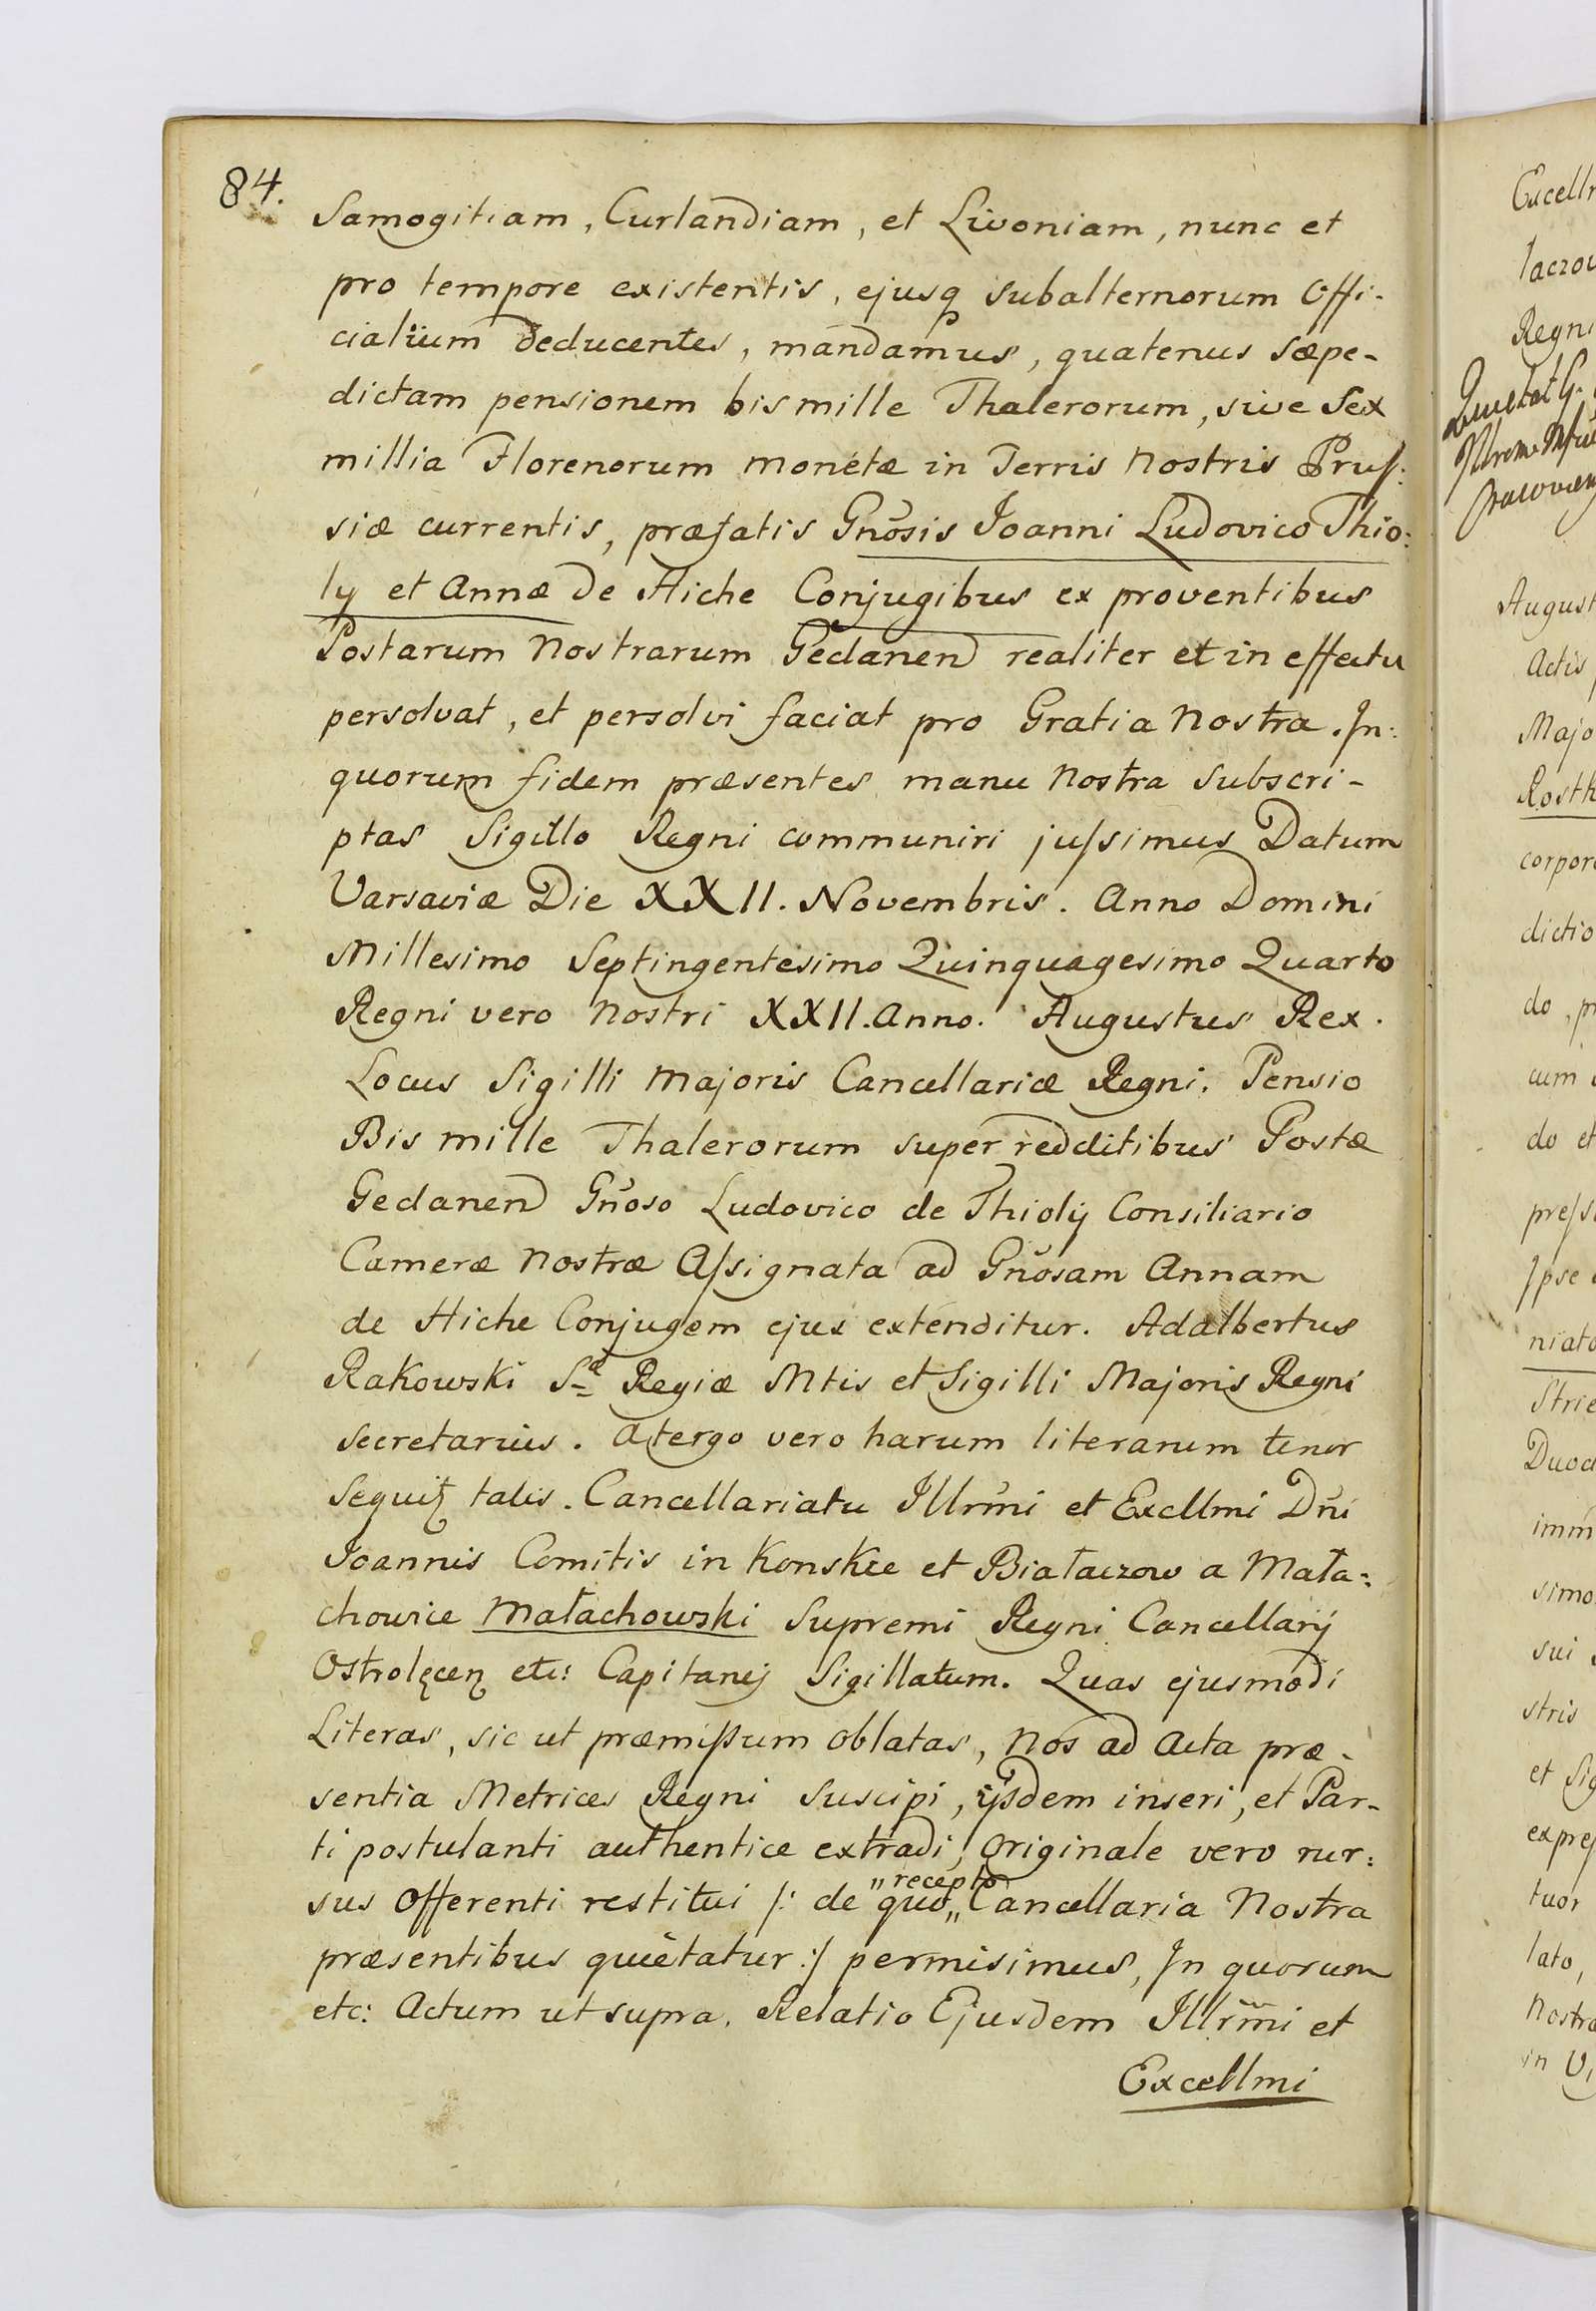 84.
Samogitiam, Curlandiam, et Livoniam, nunc et
pro tempore existentis, ejusq subalternorum Offi-
cialium deducentes, mandamus, quatenus sæpe-
dictam pensionem bis mille Thalerorum, sive Sex
millia Florenorum monetæ in Terris Nostris Prus:
siæ currentis, præfatis Gnosis Joanni Ludovico Thio:
ly et Annæ de Hiche Conjugibus ex proventibus
Postarum Nostrarum Gedanen realiter et in effectu
persolvat, et persolvi faciat pro Gratia Nostra. In:
quorum fidem præsentes manu Nostra subscri-
ptas Sigillo Regni communiri jussimus Datum
Varsaviæ Die XXII. Novembris. Anno Domini
Millesimo Septingentesimo Quinquagesimo Quarto
Regni vero Nostri XXII. Anno. Augustus Rex.
Locus Sigilli Majoris Cancellariæ Regni. Pensio
Bis mille Thalerorum super redditibus Postæ
Gedanen Gnoso Ludovico de Thioly Consiliario
Cameræ Nostræ Assignata ad Gnosam Annam
de Hiche Conjugem ejus extenditur. Adalbertus
Rakowski Sæ Regiæ Mtis et Sigilli Majoris Regni
Secretarius. A tergo vero harum literarum tenor
Sequit talis. Cancellariatu Illrmi et Excllmi Dni
Joannis Comitis in Konskie et Białaczow a Mała=
chowice Małachowski Supremi Regni Cancellarij
Ostrolęcen etc: Capitanej Sigillatum. Quas ejusmodi
Literas, sic ut præmissum oblatas, Nos ad Acta præ-
sentia Metrices Regni Suscipi, ijsdem inseri, et Par-
ti postulanti authentice extradi, Originale vero rur:
sus Offerenti restitui /: de quo „recepto„ Cancellaria Nostra
præsentibus quietatur :/ permisimus, In quorum
etc: Actum ut supra. Relatio Ejusdem Illrmi et
Excellmi
Regni
August
Actis
Majo
Rostk
corpor
dictio
do, pr
cum
do et
Ipse
niato
Duod
imm
simo
sui
stris
et Sig
tuor
lato,
Nostra